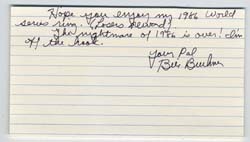 Hope you enjoy my 1986 World
series ring. (Losers Reward)
The nightmare of 1986 is over! I'm
off the hook.
Your Pal
Bill Buckner